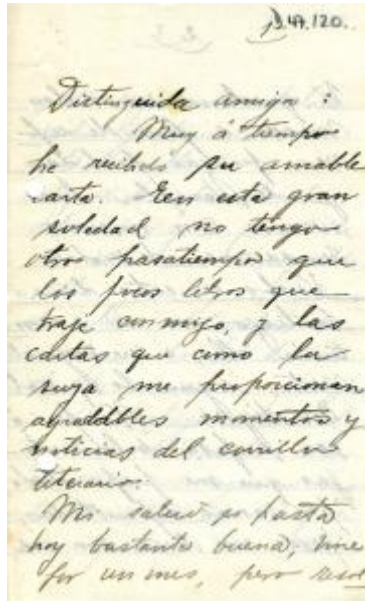 D.47.120.
Distinguida amiga:
Muy á tiempo
he recibido su amable
carta. En esta gran
soledad no tengo
otro pasatiempo que
los pocos libros que
traje conmigo, y las
cartas que como la
suya me proporcionan
agradables momentos y
noticias del corrillo
literario.
Mi salud es hasta
hoy bastante buena; vine
por un mes, pero